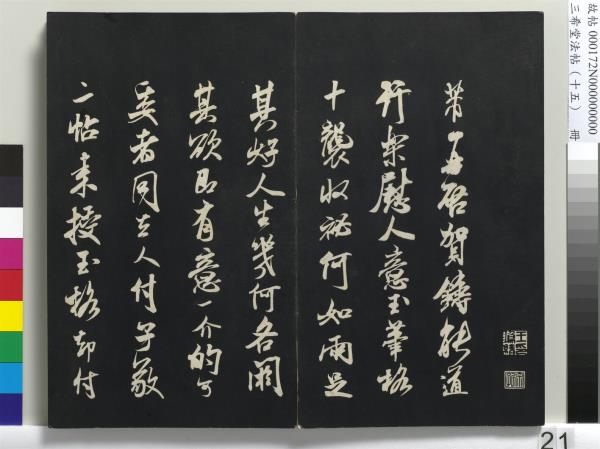 故帖 000172N000000000
三希堂法帖（十五） 冊
芾再啓賀鑄能道
行樂慰人意玉筆格
十襲收祕何如兩足
其好人生幾何各閼
其欲即有意一介的可
委者同去人付子敬
二帖來授玉格却付
21